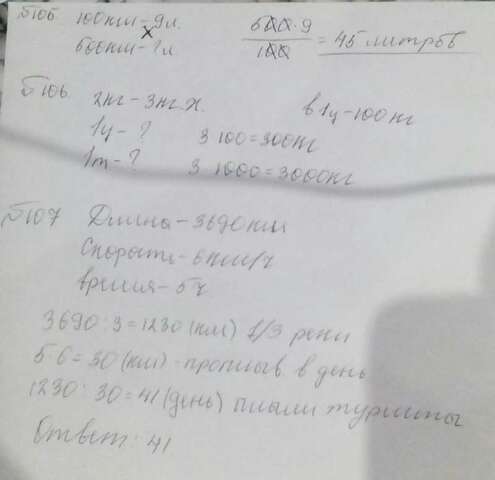 №105 100км - 9л. 500·9
x ─── = 45 литров
500км - ?л 100
№106
2кг - 3кг х. в 1ц - 100кг
1ц - ? 3 100 = 300кг
1т - ? 3 1000 = 3000кг
№107 Длина - 3690км
Скорость - 6км/ч
время - 5ч
3690 : 3 = 1230 (км) 1/3 реки
5·6 = 30 (км) - проплыв. в день
1230 : 30 = 41 (день) плыли туристы
Ответ: 41